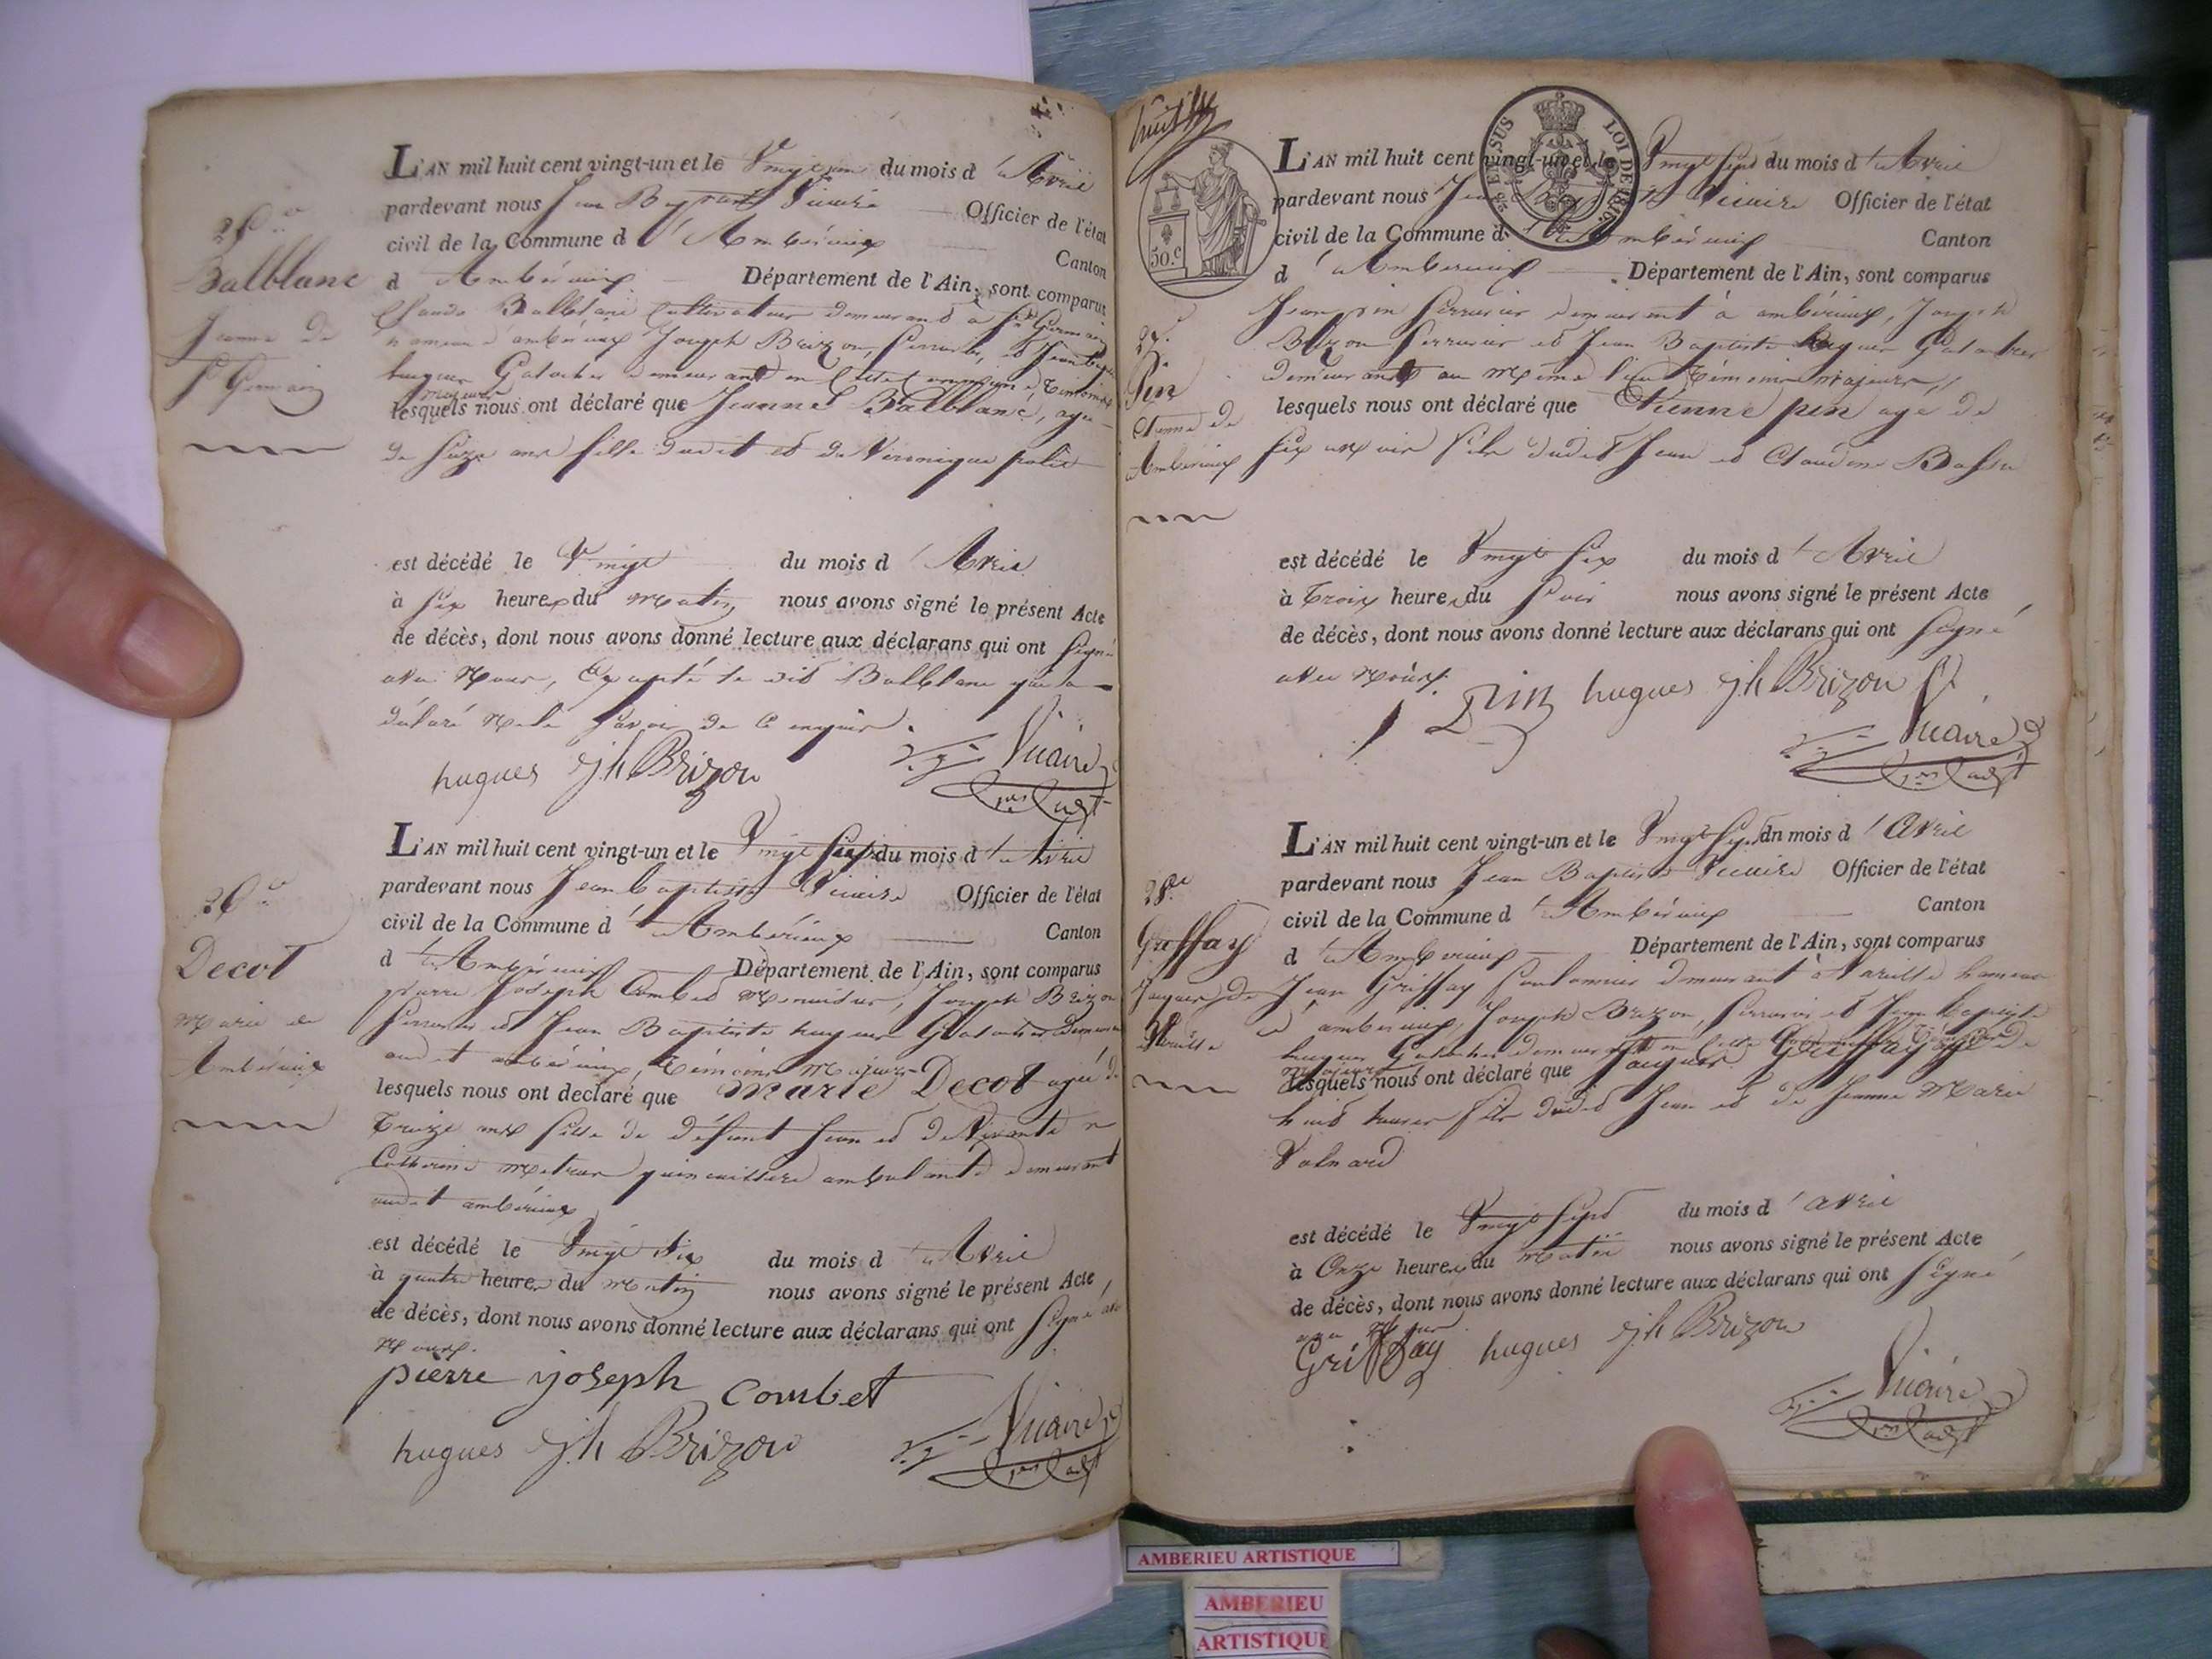 25.e
Balblanc
Jeanne de
St Germain
L'AN mil huit cent vingt-un et le Vingt du mois d'Avril
pardevant nous Jean Baptiste Vicaire Officier de l'état
civil de la Commune d'Ambérieux Canton
d'Ambérieux Département de l'Ain, sont comparus
Claude Balblanc Cultivateur demeurant à St Germain
hameau d'ambérieux Joseph Brizon, Serrurier, et Jean Baptiste
hugues Galocher demeurant en cette commune, Témoins
majeurs
lesquels nous ont déclaré que Jeanne Balblanc, agée
de Seize ans fille dudit et de Véronique
est décédé le Vingt du mois d'Avril
à Six heures du matin, nous avons signé le présent Acte
de décès, dont nous avons donné lecture aux déclarans qui ont Signé
avec Nous, Excepté le dit Balblanc qui a
déclaré Ne le Savoir de Ce enquis.
hugues jh Brizon Vicaire
26.e
Decot
Marie de
Ambérieux
L'AN mil huit cent vingt-un et le Vingt Six du mois d'Avril
pardevant nous Jean baptiste Vicaire Officier de l'état
civil de la Commune d'Ambérieux Canton
d'Ambérieux Département de l'Ain, sont comparus
pierre Joseph Combet Menuisier, Joseph Brizon
Serrurier et Jean Baptiste hugues Galocher demeurant
audit ambérieux, Témoins Majeurs
lesquels nous ont declaré que Marie Decot agée de
Treize ans fille de défunt Jean et de Vivante
Catherine quincaillere ambulante demeurant
audit ambérieux
est décédé le Vingt Six du mois d'Avril
à quatre heures du Matin nous avons signé le présent Acte
de décès, dont nous avons donné lecture aux déclarans qui ont Signé avec
Nous.
pierre joseph Combet
hugues jh Brizon Vicaire
huit
50.c
EN SUS
LOI DE 1816.
27.e
Pin
Etienne de
Ambérieux
L'AN mil huit cent vingt-un et le Vingt Sept du mois d'Avril
pardevant nous Jean Baptiste Vicaire Officier de l'état
civil de la Commune d'Ambérieux Canton
d'Ambérieux Département de l'Ain, sont comparus
Jean pin Serrurier demeurant à ambérieux, Joseph
Brizon Serrurier et Jean Baptiste hugues Galocher
demeurants au même lieu Témoins majeurs,
lesquels nous ont déclaré que Etienne pin agé de
Six fils dudit Jean et Claudine
est décédé le Vingt Six du mois d'Avril
à Trois heures du Soir nous avons signé le présent Acte
de décès, dont nous avons donné lecture aux déclarans qui ont Signé
avec Nous.
Pin hugues jh Brizon
Vicaire
28.e
Griffay
Jaques de
L'AN mil huit cent vingt-un et le Vingt Sept du mois d'Avril
pardevant nous Jean Baptiste Vicaire Officier de l'état
civil de la Commune d'Ambérieux Canton
d'Ambérieux Département de l'Ain, sont comparus
Jean Griffay demeurant à hameau
d'ambérieux, Joseph Brizon, Serrurier et Jean baptiste
hugues Galocher demeurant en cette
majeurs
lesquels nous ont déclaré que Jaques Griffay agé de
huit heures fils dudit Jean et de Jeanne Marie
est décédé le Vingt Sept du mois d'Avril
à Onze heures du Matin nous avons signé le présent Acte
de décès, dont nous avons donné lecture aux déclarans qui ont Signé
avec Nous
Griffay hugues jh Brizon
Vicaire
AMBERIEU ARTISTIQUE
AMBERIEU
ARTISTIQUE